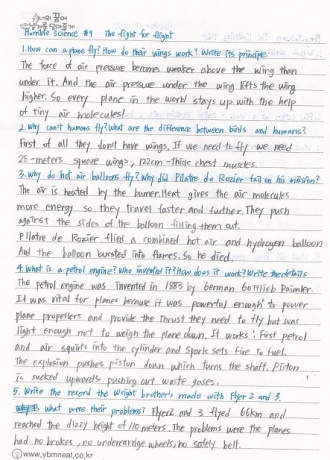 Horrible Science #9 The fight for flight
1. How can a plane fly? How do their wings work? Write its principle
The force of air pressure becomes weaker above the wing than
under it. And the air pressure under the wing lifts the wing
higher. So every plane in the world stays up with the help
of tiny air molecules!
2. Why can't humans fly? What are the difference between birds and humans?
First of all they don't have wings. If we need to fly we need
25-meters square wings, 122cm-thick chest muscles.
3. Why do hot air balloons fly? Why did Pilatre de Rozier fail on his mission?
The air is heated by the burner. Heat gives the air molecules
more energy so they travel faster and further. They push
against the sides of the balloon filling them out.
Pilatre de Rozier flied a combined hot air and hydrogen balloon
And the balloon bursted into flames. So he died.
4. What is a petrol engine? Who invented it? How does it work? Write the details
The petrol engine was invented in 1883 by German Gottlieb Daimler.
It was vital for planes because it was powerful enough to power
plane propellers and provide the thrust they need to fly but was
light enough not to weigh the plane down. It works: First petrol
and air squirts into the cylinder and spark sets fire to fuel.
The explosion pushes piston down which turns the shaft. Piston
is sucked upwards pushing out waste gases.
5. Write the record the Wright brothers made with Flyer 2 and 3.
What were their problems? Flyer2 and 3 flyed 66km and
reached the dizzy height of 110 meters. The problems were the planes
had no brakes, no undercarriage wheels, no safety belt.
www.ybmneat.co.kr